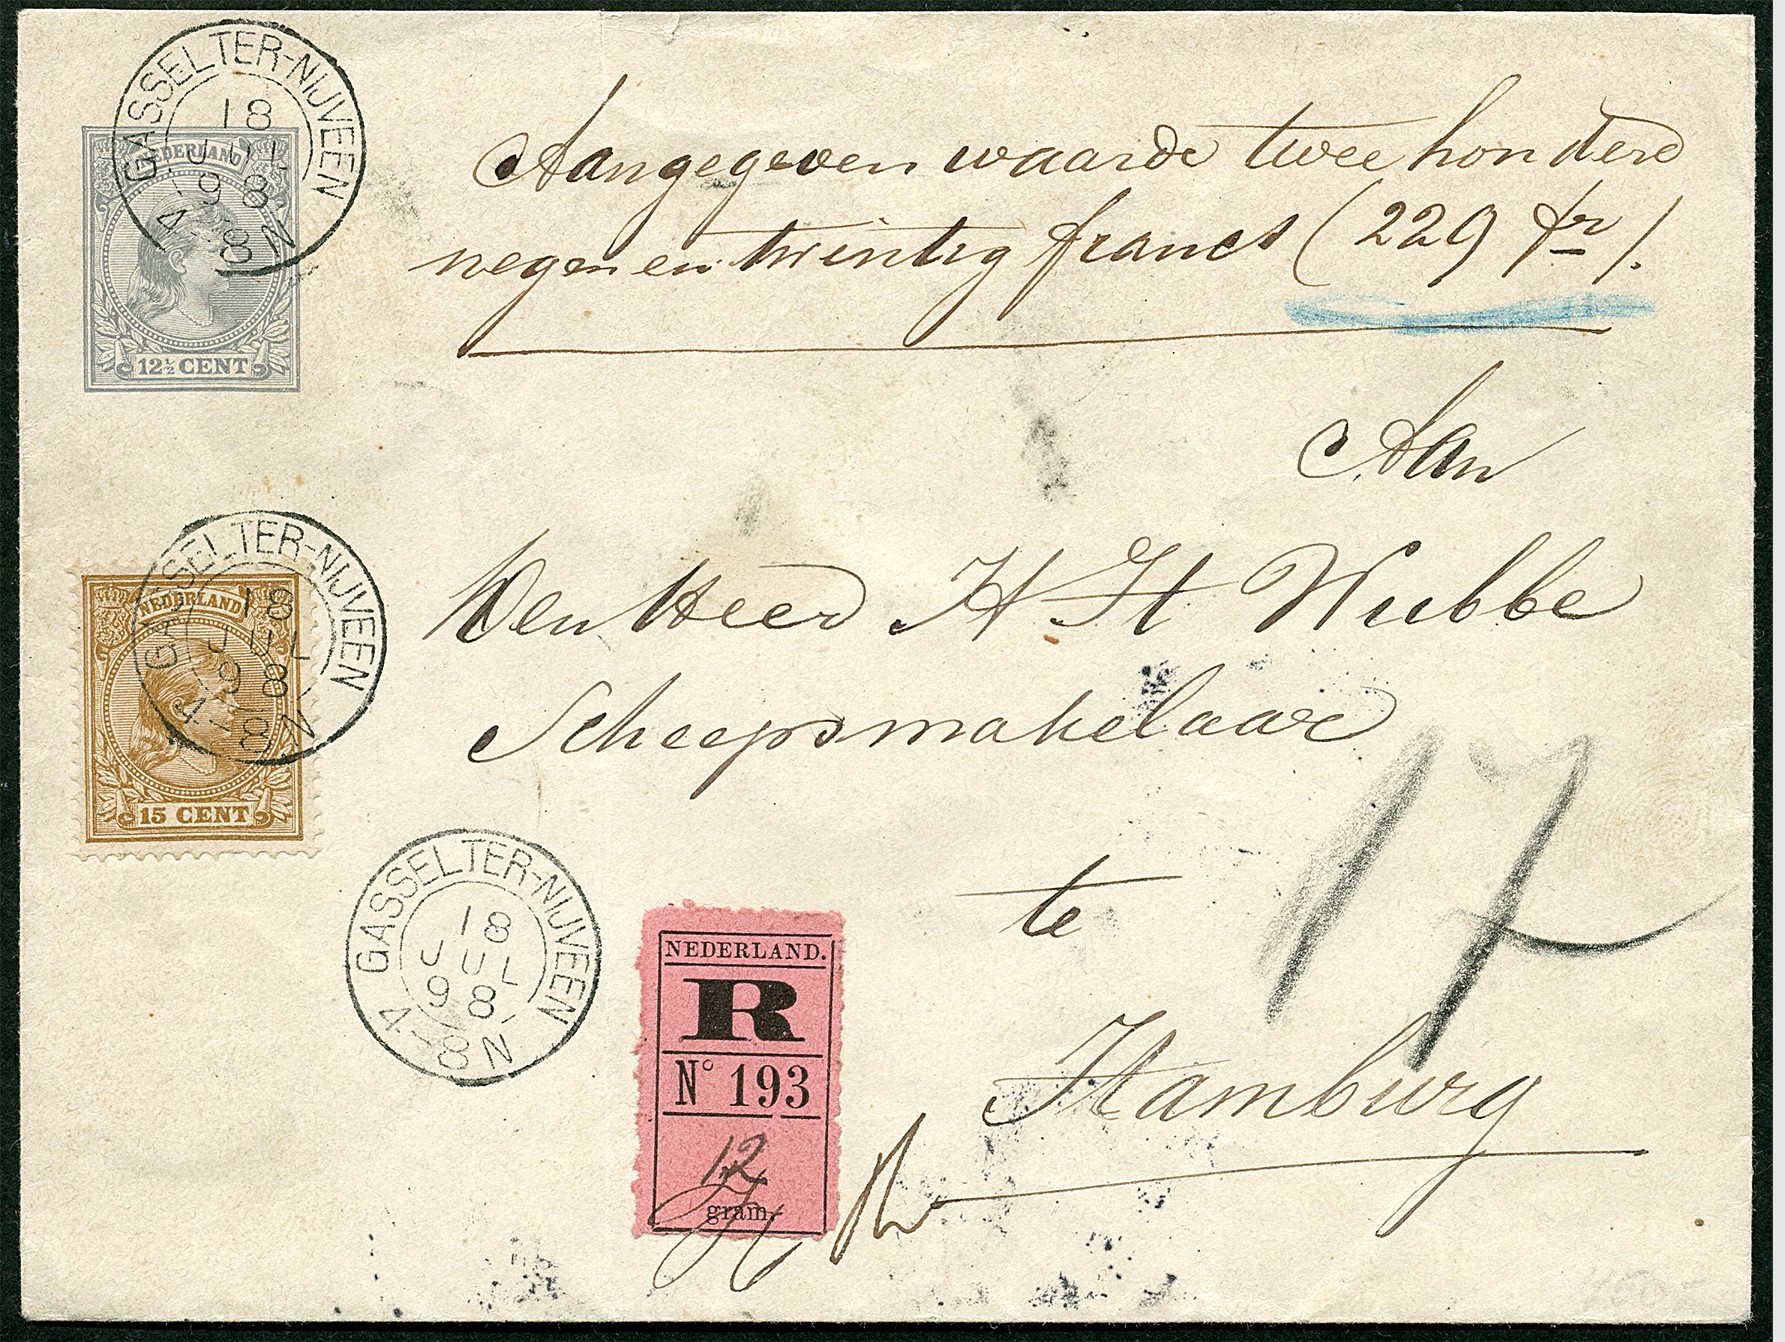 GASSELTER-NIJVEEN
18
JUL
98
8-N
NEDERLAND
12½ CENT
Aangegeven waarde twee honderd
negenentwintig francs (229 fr).
Aan
Den Heer H H Wubbe
Scheepsmakelaar
te
Hamburg
17
GASSELTER-NIJVEEN
18
JUL
98
8-N
NEDERLAND
15 CENT
GASSELTER-NIJVEEN
18
JUL
98
8-N
NEDERLAND.
R
N° 193
12
gram.